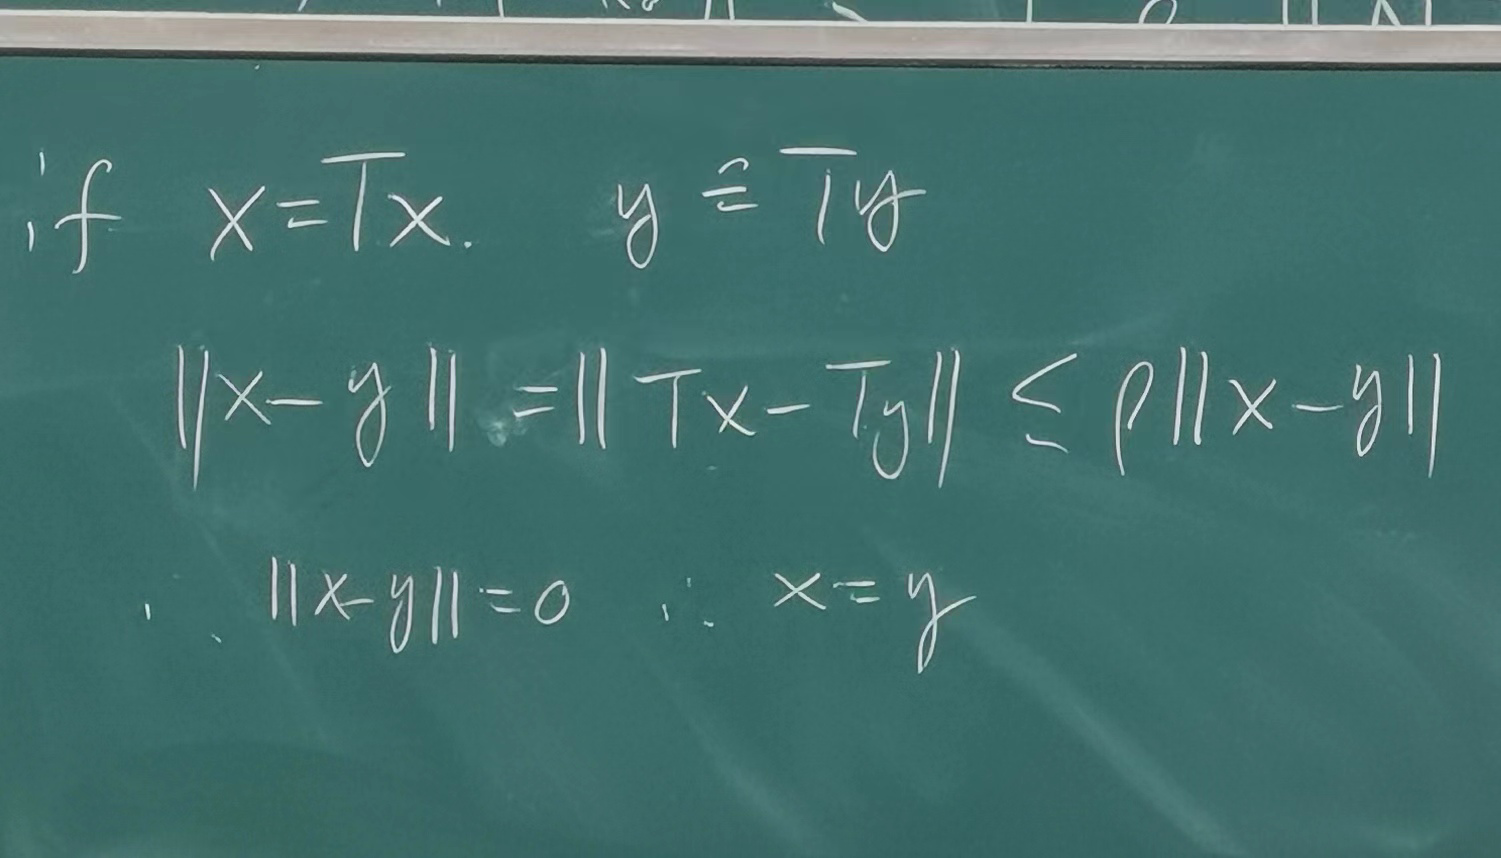 if x = Tx. y = Ty
||x - y|| = ||Tx - Ty|| ≤ ρ||x - y||
∴ ||x - y|| = 0 ∴ x = y